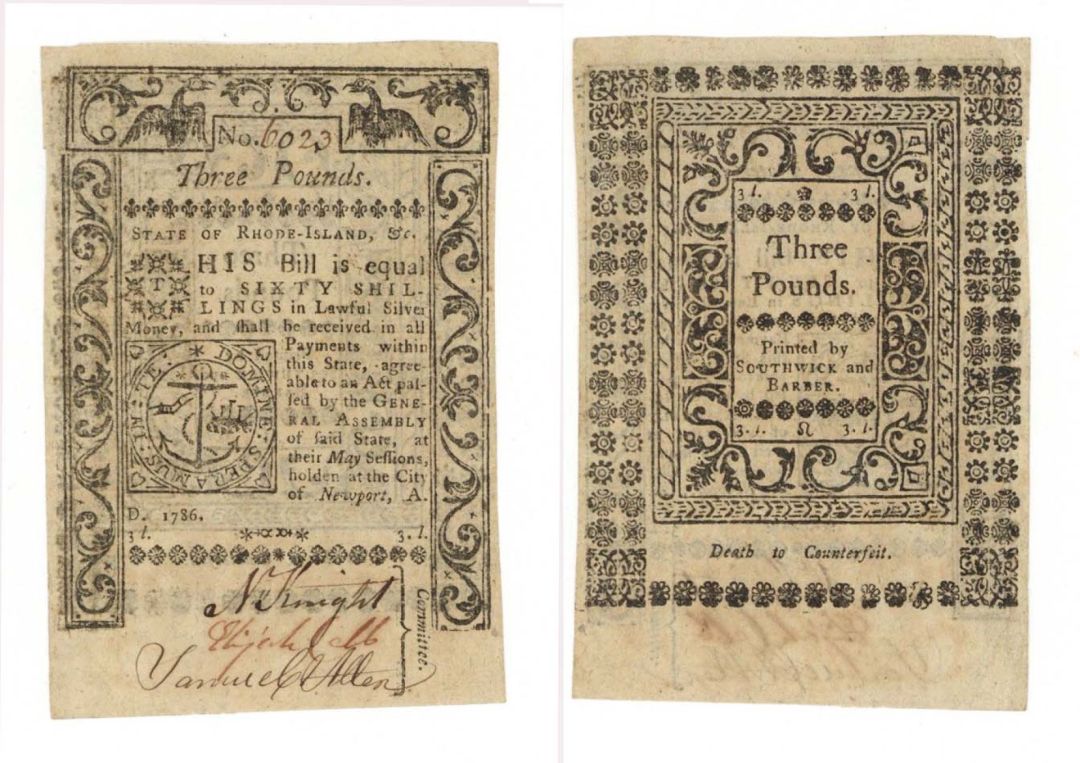 No. 6023
Three Pounds.
STATE OF RHODE-ISLAND, &c.
THIS Bill is equal
to SIXTY SHIL-
LINGS in Lawful Silver
Money, and shall be received in all
Payments within
this State, agree-
able to an Act pas-
sed by the GENE-
RAL ASSEMBLY
of said State, at
their May Sessions,
holden at the City
of Newport, A.
D. 1786.
IN TE DOMINE SPERAMUS
3 l. 3. l.
N Knight
Elijah
Samuel Allen
Committee.
3 l. 3 l.
Three
Pounds.
Printed by
SOUTHWICK and
BARBER.
3. l. 3. l.
Death to Counterfeit.